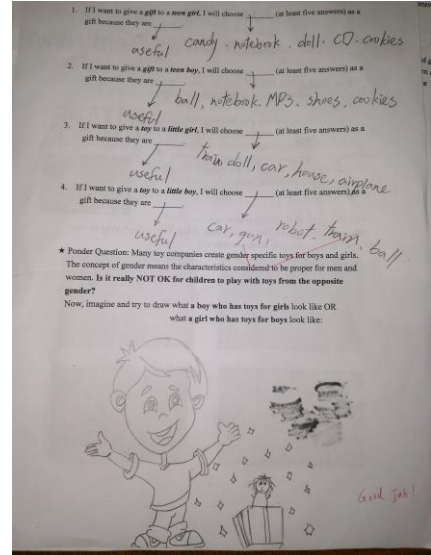 1. If I want to give a gift to a teen girl, I will choose ______ (at least five answers) as a
gift because they are ______
useful candy. notebook. doll. CD. cookies
2. If I want to give a gift to a teen boy, I will choose ______ (at least five answers) as a
gift because they are ______
useful ball, notebook. MP3. shoes, cookies
3. If I want to give a toy to a little girl, I will choose ______ (at least five answers) as a
gift because they are ______
useful train, doll, car, house, airplane
4. If I want to give a toy to a little boy, I will choose ______ (at least five answers) as a
gift because they are ______
useful car, gun, robot. train. ball
★ Ponder Question: Many toy companies create gender specific toys for boys and girls.
The concept of gender means the characteristics considered to be proper for men and
women. Is it really NOT OK for children to play with toys from the opposite
gender?
Now, imagine and try to draw what a boy who has toys for girls look like OR
what a girl who has toys for boys look like:
Good job!